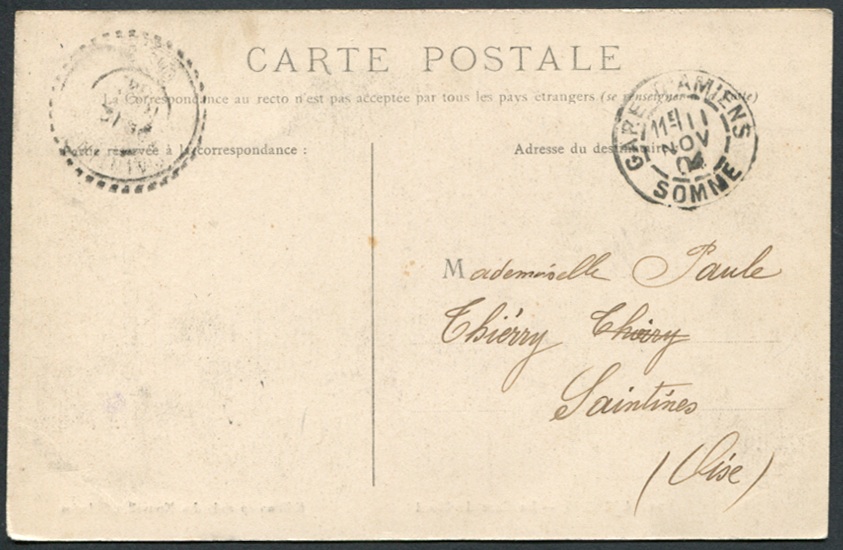 CARTE POSTALE
La Correspondance au recto n'est pas acceptée par tous les pays étrangers (se renseigner à la Poste)
Partie réservée à la correspondance :
Adresse du destinataire
GARE D'AMIENS
11E 11
NOV
04
SOMME
Mademoiselle Paule
Thiérry Thiery
Saintines
(Oise)